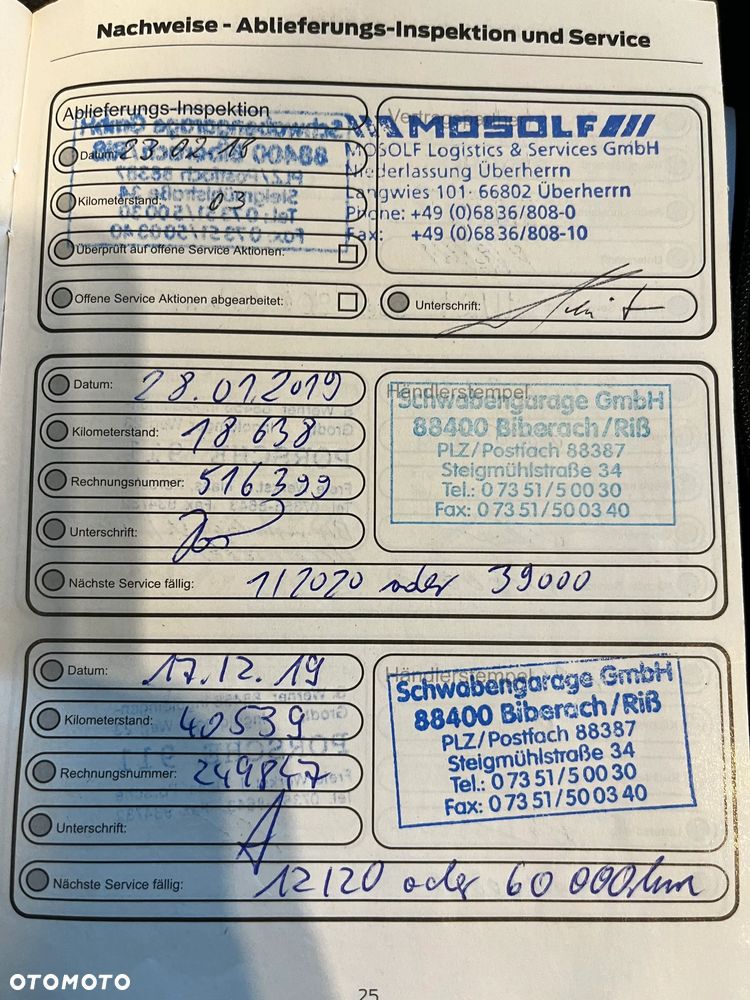 Nachweise - Ablieferungs-Inspektion und Service
Ablieferungs-Inspektion
Datum: 23.02.18
Kilometerstand: 03
Überprüft auf offene Service Aktionen:
Offene Service Aktionen abgearbeitet:
MOSOLF
MOSOLF Logistics & Services GmbH
Niederlassung Überherrn
Langwies 101 · 66802 Überherrn
Phone: +49 (0)6836/808-0
Fax: +49 (0)6836/808-10
Unterschrift:
Datum: 28.01.2019
Kilometerstand: 18 638
Rechnungsnummer: 516399
Unterschrift:
Nächste Service fällig: 1/2020 oder 39000
Händlerstempel
Schwabengarage GmbH
88400 Biberach/Riß
PLZ/Postfach 88387
Steigmühlstraße 34
Tel.: 0 73 51/5 00 30
Fax: 0 73 51/50 03 40
Datum: 17.12.19
Kilometerstand: 40539
Rechnungsnummer: 249847
Unterschrift:
Nächste Service fällig: 12/20 oder 60 000km
Händlerstempel
Schwabengarage GmbH
88400 Biberach/Riß
PLZ/Postfach 88387
Steigmühlstraße 34
Tel.: 0 73 51/5 00 30
Fax: 0 73 51/50 03 40
25
OTOMOTO